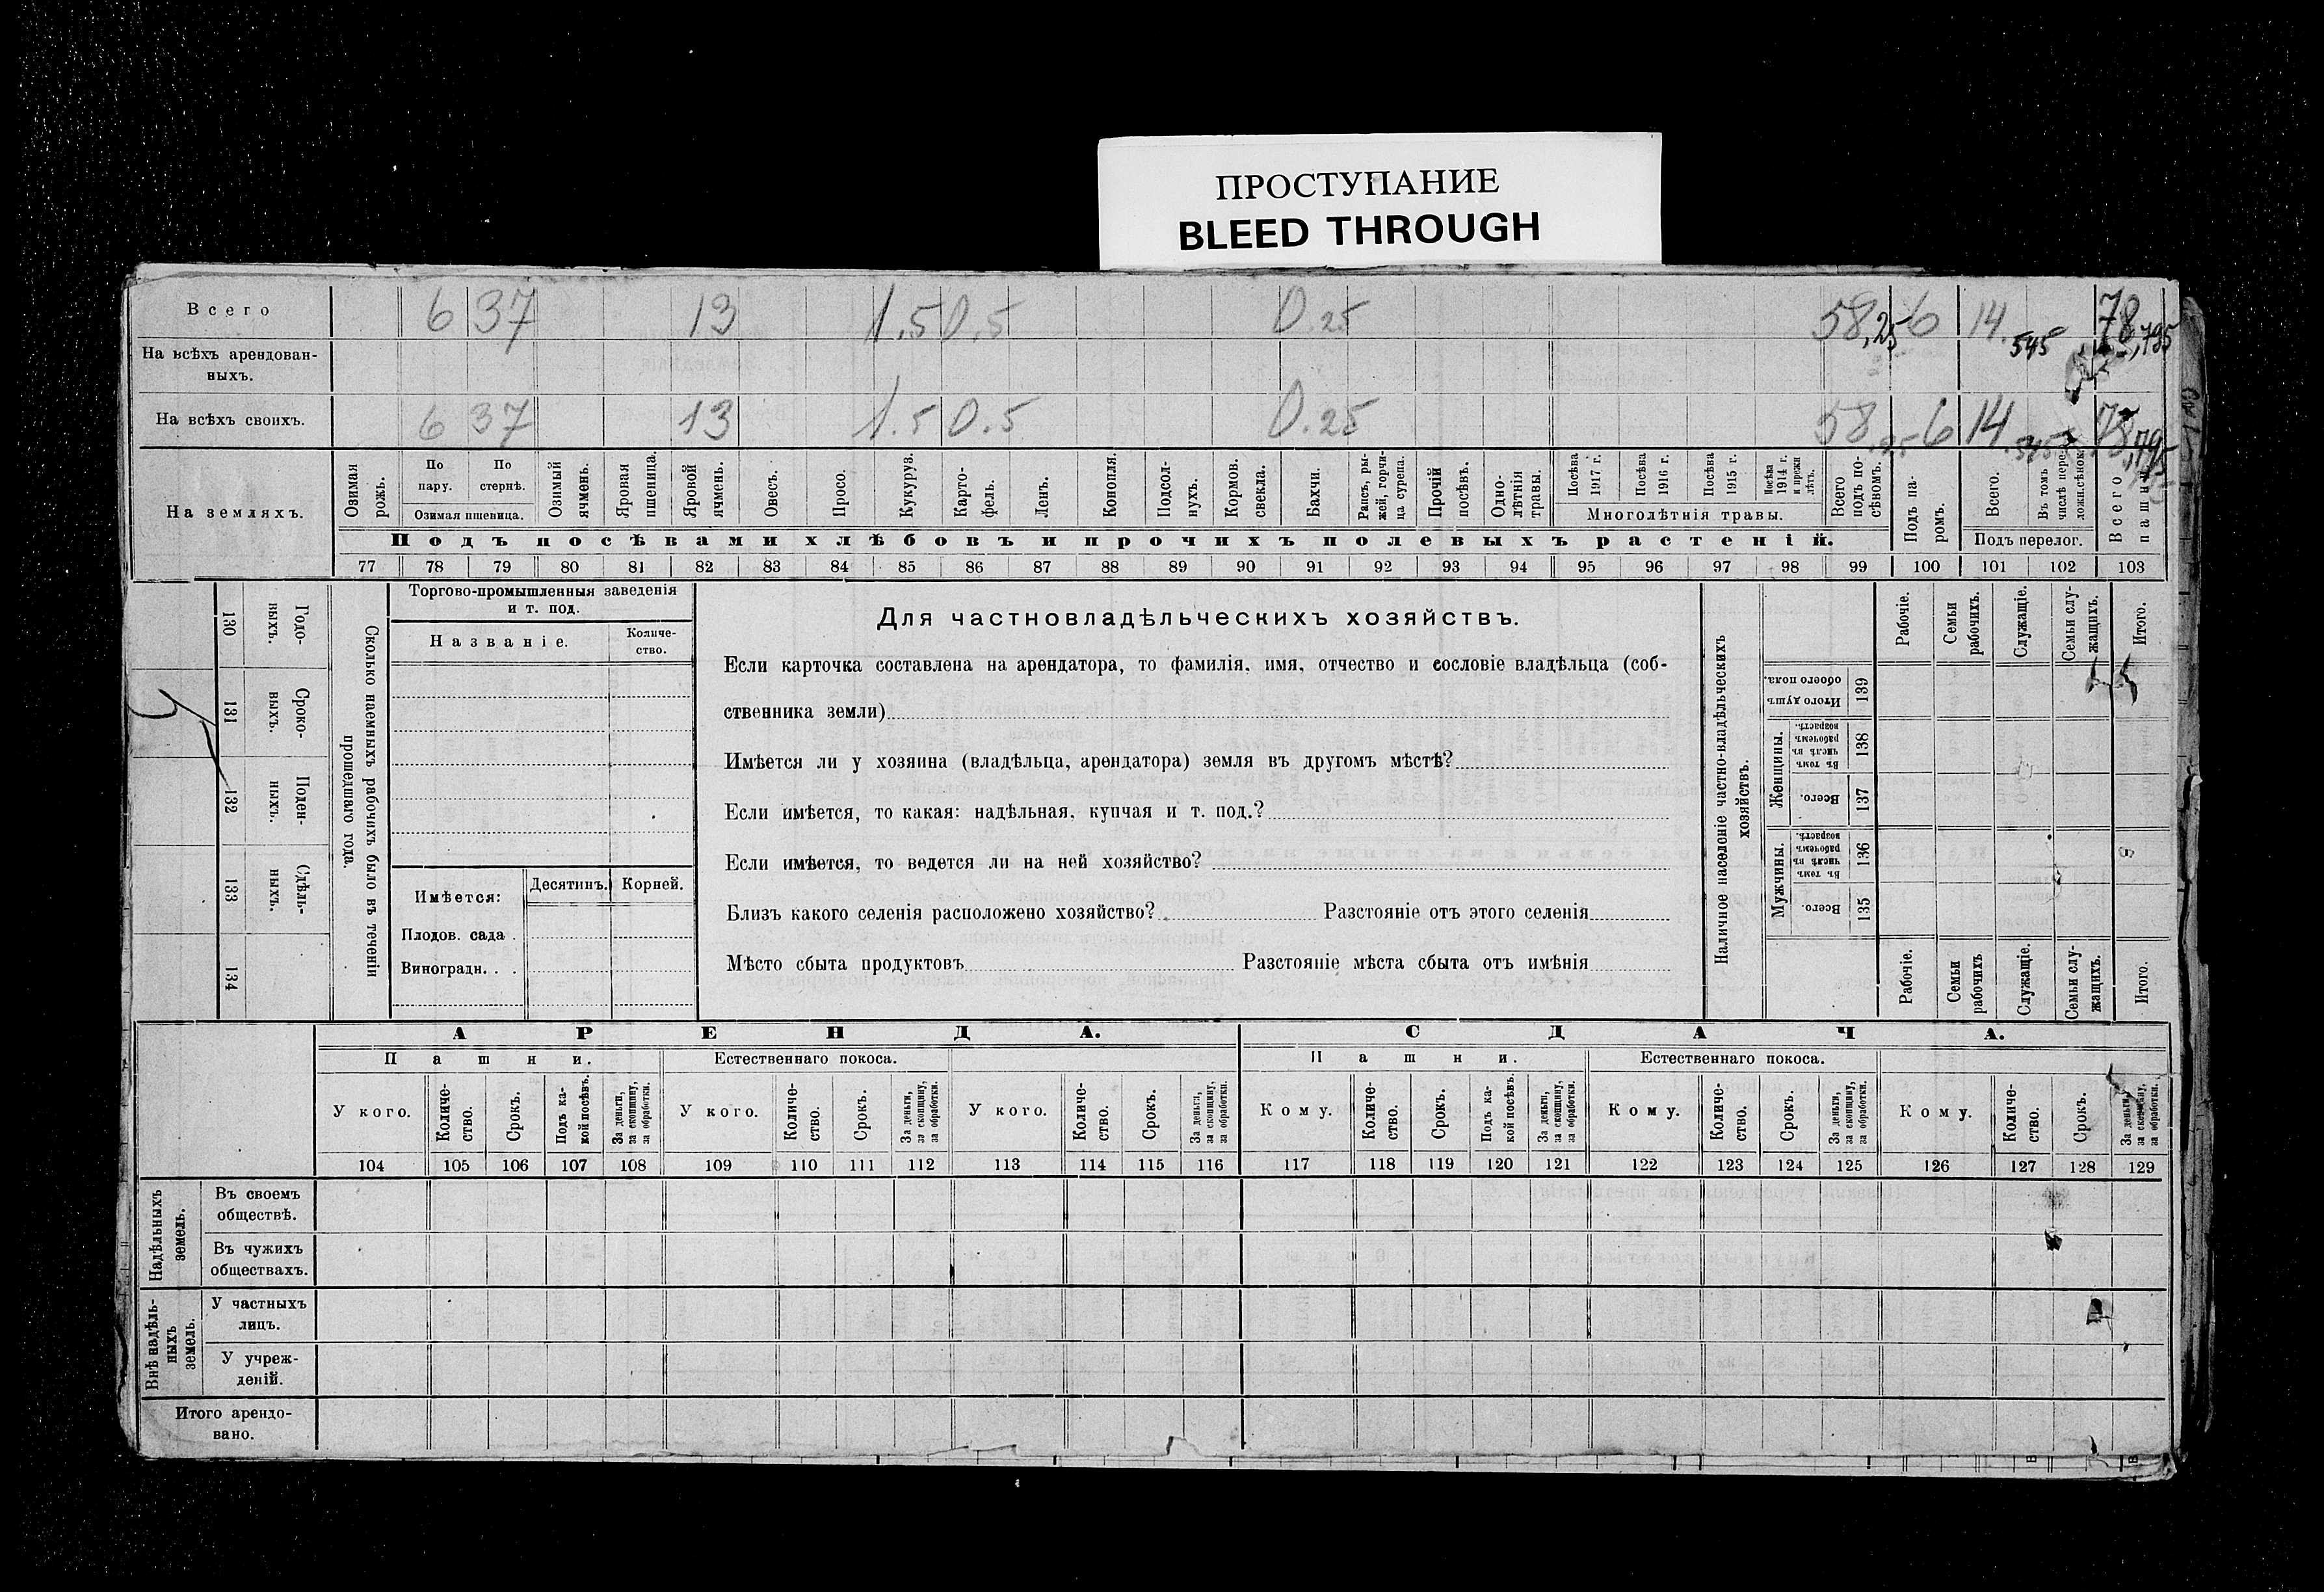 ПРОСТУПАНИЕ
BLEED THROUGH
Всего 6 37 13 1.5 0.5 0.25 58,25 6 14.545 78,795
На всѣхъ арендован-
ныхъ.
На всѣхъ своихъ. 6 37 13 1.5 0.5 0.25 58.25 6 14.545 78,795
На земляхъ.
Озимая рожь.
По пару.
По стернѣ.
Озимая пшеница.
Озимый ячмень.
Яровая пшеница.
Яровой ячмень.
Овесъ.
Просо.
Кукуруз.
Карто-
фель.
Ленъ.
Конопля.
Подсол-
нухъ.
Кормов. свекла.
Бахчи.
Рапсъ, ры-
жей, горчи-
ца сурепа.
Прочій посѣвъ.
Одно-
лѣтнія
травы.
Посѣва 1917 г.
Посѣва 1916 г.
Посѣва 1915 г.
Посѣва 1914 г. и прежн лѣтъ.
Многолѣтнія травы.
Всего подъ по-
сѣвомъ.
Подъ па-
ромъ.
Всего.
Въ томъ числѣ пере-
ложн.сѣнок.
Подъ перелог.
Всего пашни
Подъ посѣвами хлѣбовъ и прочихъ полевыхъ растеній.
77 78 79 80 81 82 83 84 85 86 87 88 89 90 91 92 93 94 95 96 97 98 99 100 101 102 103
130 Годо-
ныхъ.
131 Сроко-
ныхъ.
132 Поден-
ныхъ.
133 Сдѣль-
ныхъ.
134
Сколько наемныхъ рабочихъ было въ теченіи
прошедшаго года.
Торгово-промышленныя заведенія
и т. под.
Названіе.
Количе-
ство.
Имѣется:
Десятинъ.
Корней.
Плодов. сада .
Виноградн. . .
Для частновладѣльческихъ хозяйствъ.
Если карточка составлена на арендатора, то фамилія, имя, отчество и сословіе владѣльца (соб-
ственника земли)
Имѣется ли у хозяина (владѣльца, арендатора) земля въ другомъ мѣстѣ?
Если имѣется, то какая: надѣльная, купчая и т. под.?
Если имѣется, то ведется ли на ней хозяйство?
Близъ какого селенія расположено хозяйство? Разстояніе отъ этого селенія
Мѣсто сбыта продуктовъ Разстояніе мѣста сбыта отъ имѣнія
Наличное населеніе частно-владѣльческихъ
хозяйствъ.
Рабочіе.
Семьи рабочихъ.
Служащіе.
Семьи слу-
жащихъ.
Итого.
Итого душъ обоего пола. 139
Женщины.
Въ томъ числѣ въ рабочемъ возрастѣ. 138
Всего. 137
Мужчины.
Въ томъ числѣ въ рабочемъ возрастѣ. 136
Всего. 135
Рабочіе.
Семьи рабочихъ
Служащіе.
Семьи слу-
жащихъ.
Итого.
АРЕНДА. СДАЧА.
Пашни. Естественнаго покоса. Пашни. Естественнаго покоса.
У кого.
Количе-
ство.
Срокъ.
Подъ ка-
кой посѣвъ.
За деньги,
за скопщину,
за обработки.
У кого.
Количе-
ство.
Срокъ.
За деньги,
за скопщину,
за обработки.
У кого.
Количе-
ство.
Срокъ.
За деньги,
за скопщину,
за обработки.
Кому.
Количе-
ство.
Срокъ.
Подъ ка-
кой посѣвъ.
За деньги,
за скопщину,
за обработки.
Кому.
Количе-
ство.
Срокъ.
За деньги,
за скопщину,
за обработки.
Кому.
Количе-
ство.
Срокъ.
За деньги,
за скопщину,
за обработки.
104 105 106 107 108 109 110 111 112 113 114 115 116 117 118 119 120 121 122 123 124 125 126 127 128 129
Надѣльныхъ
земель.
Въ своемъ
обществѣ.
Въ чужихъ
обществахъ.
Внѣ надѣль-
ныхъ
земель.
У частныхъ
лицъ.
У учреж-
деній.
Итого арендо-
вано.